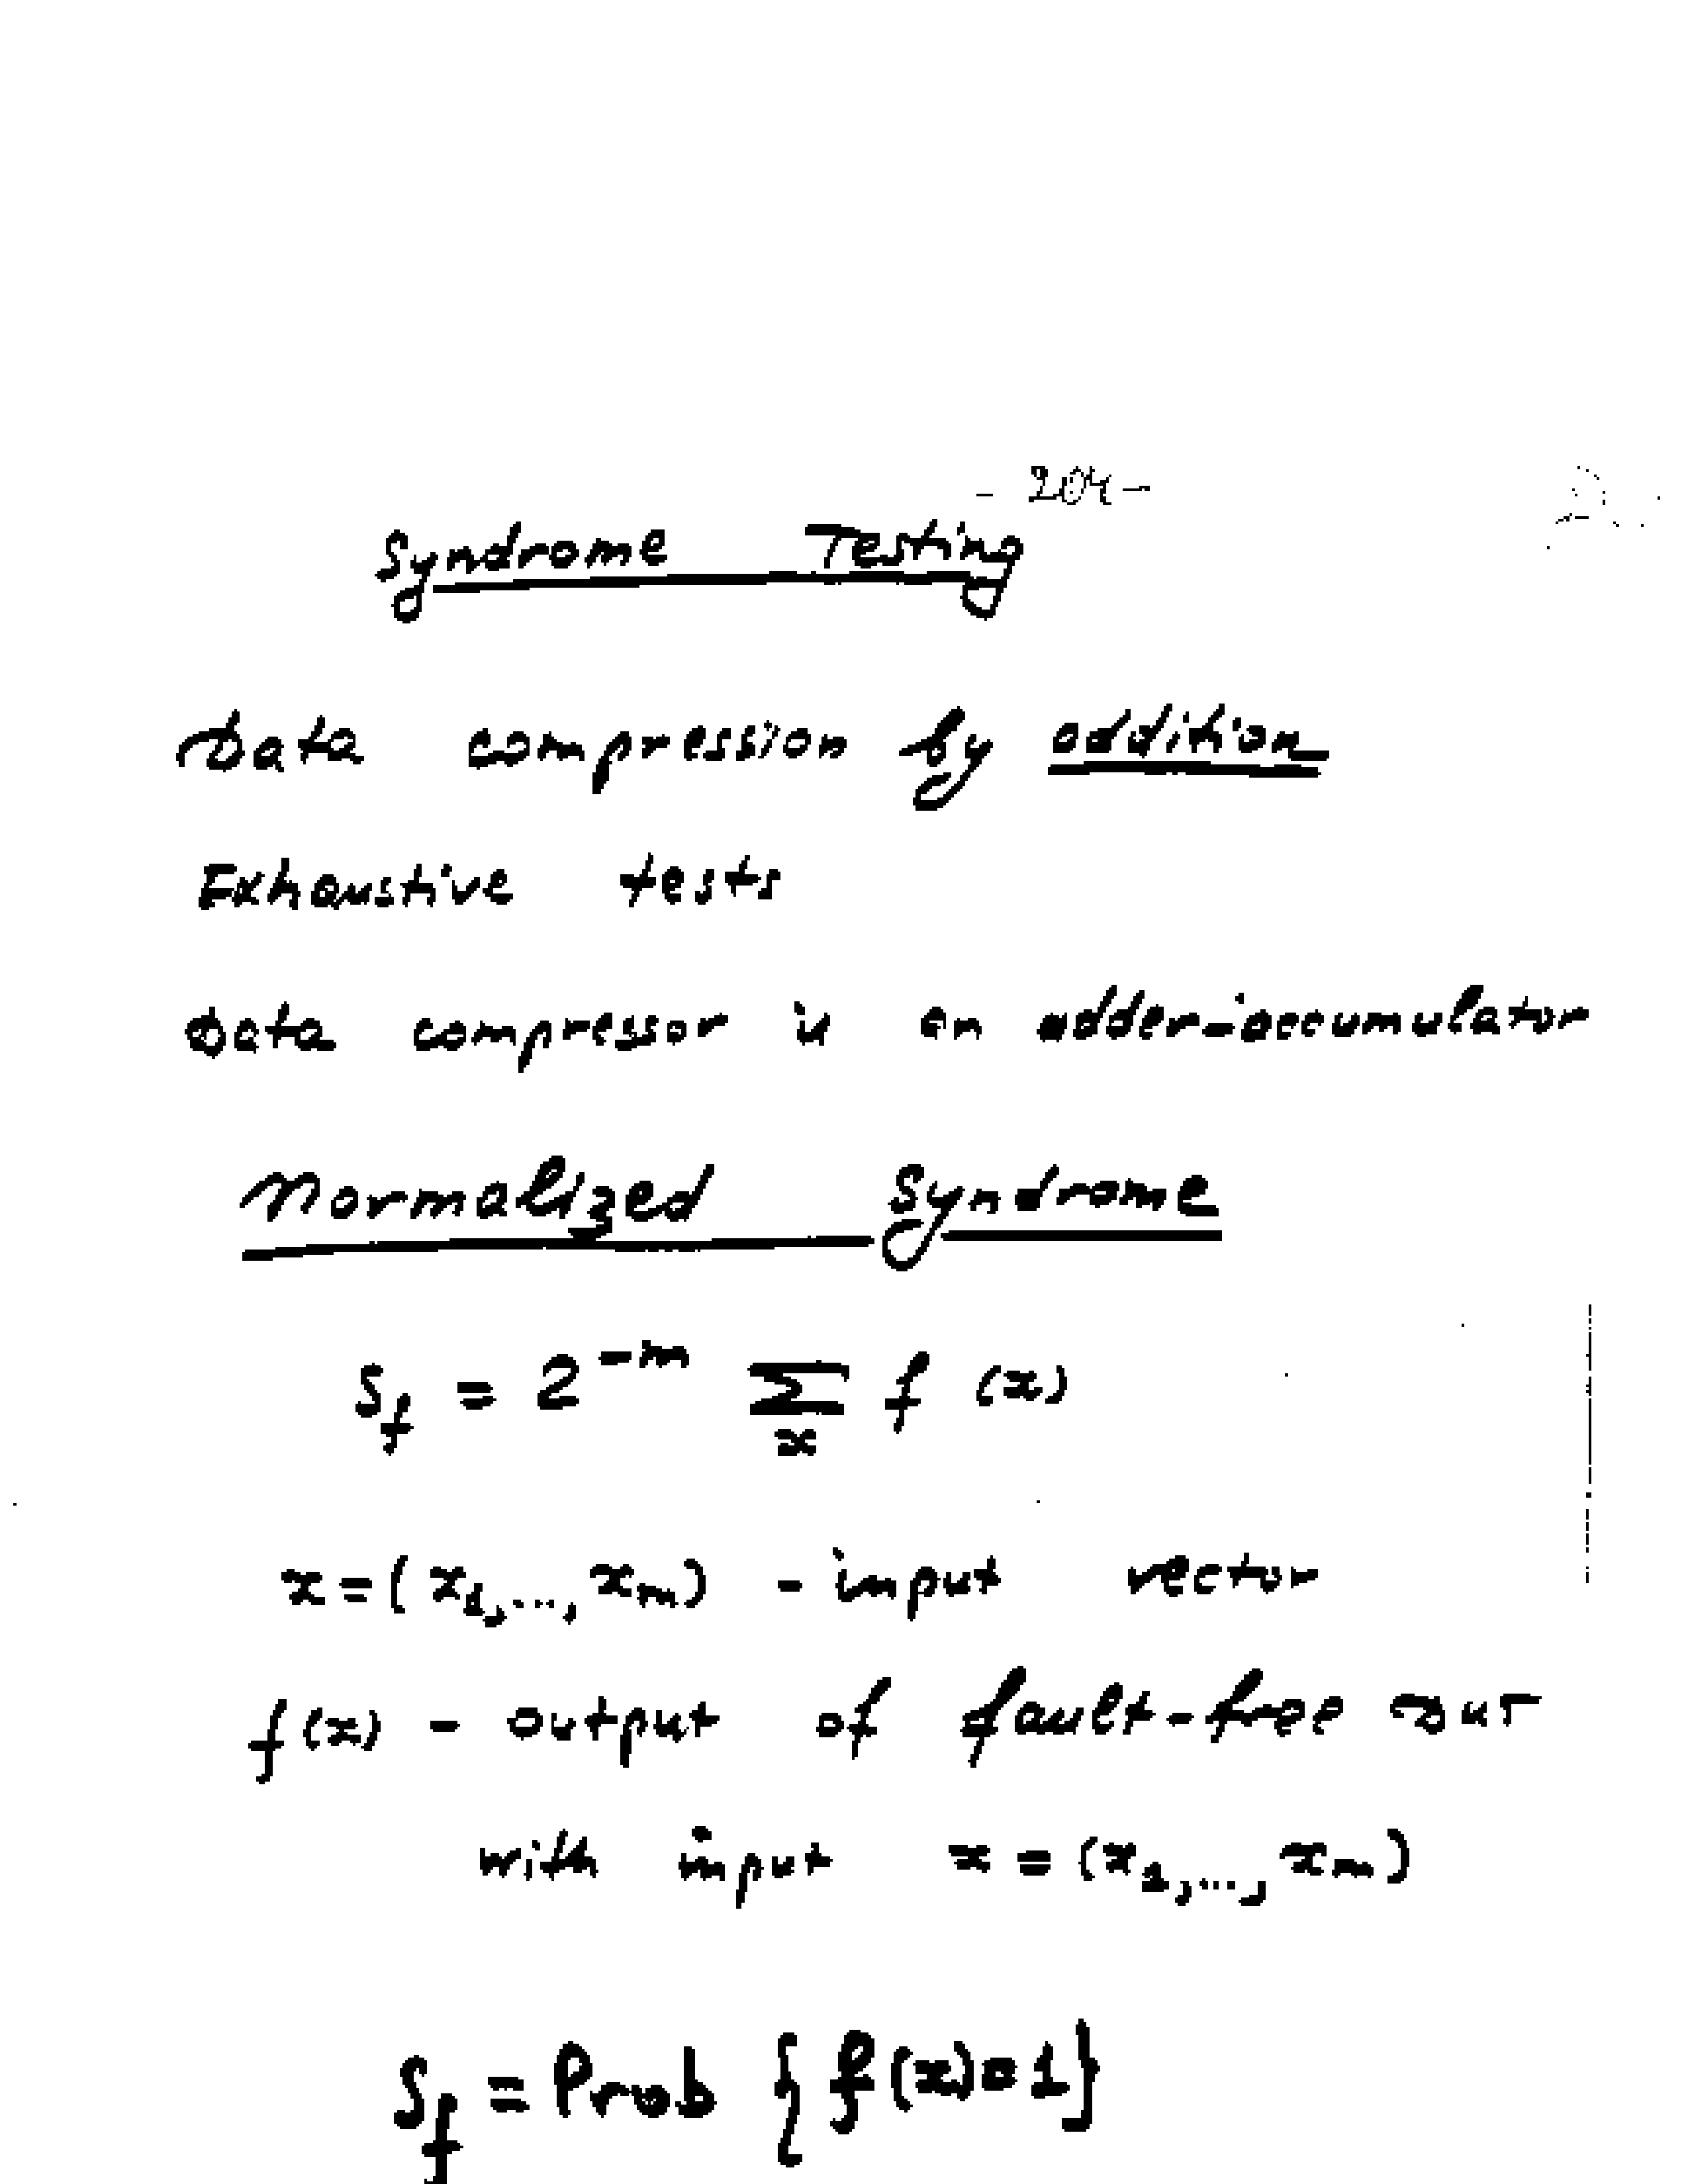 - 204 -
Syndrome Testing
Data compression by addition
Exhaustive tests
Data compressor is an adder-accumulator
Normalized Syndrome
S_f = 2^{-m} Σ_x f (x)
x = (x_1, ..., x_m) - input vector
f(x) - output of fault-free DUT
with input x = (x_1, ..., x_m)
S_f = Prob { f(x) = 1 }